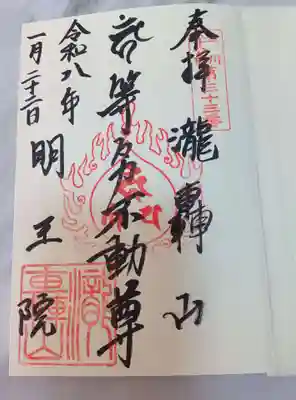 玉川第三十三番
奉拝 瀧轟山
等々力不動尊
令和八年
一月二十二日
明王院
瀧轟山